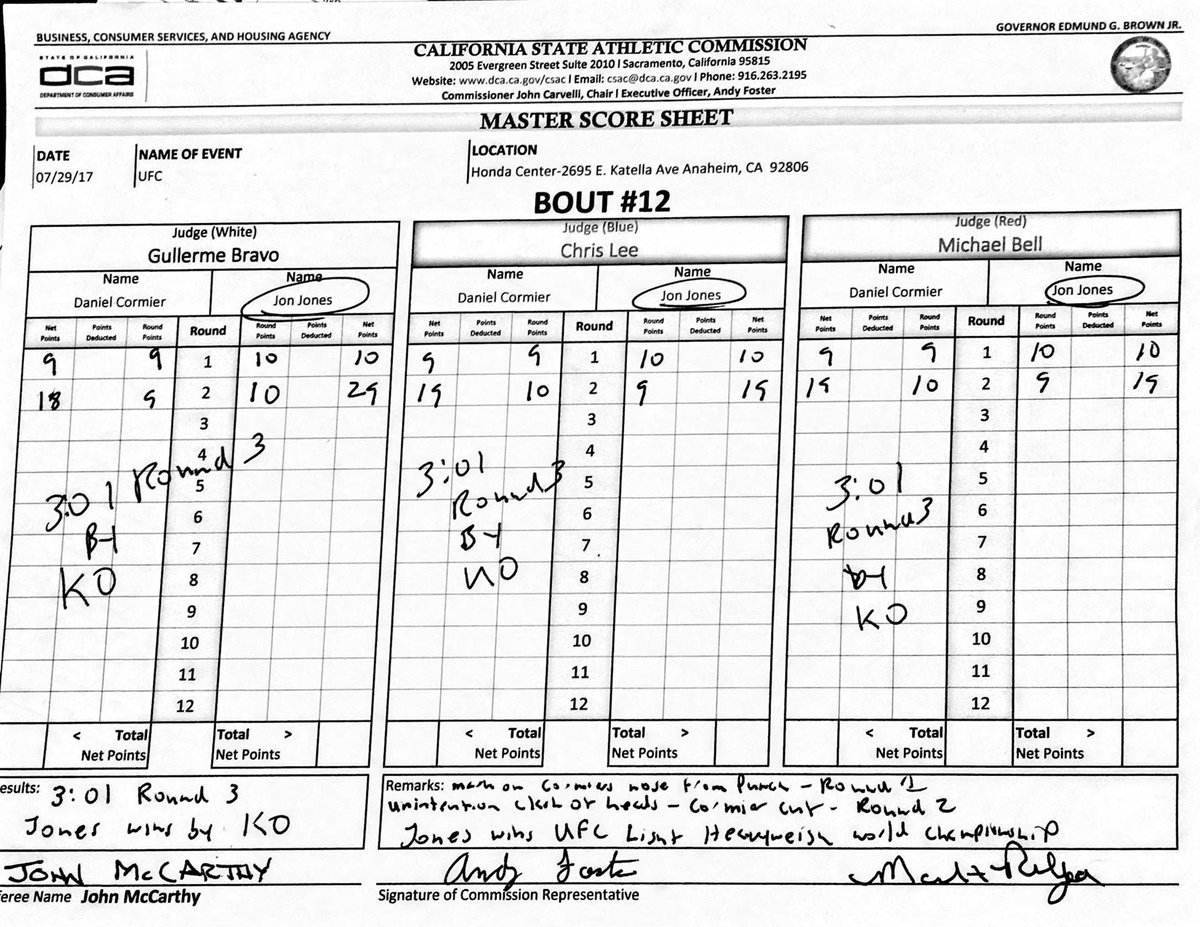 BUSINESS, CONSUMER SERVICES, AND HOUSING AGENCY
GOVERNOR EDMUND G. BROWN JR.
STATE OF CALIFORNIA
dca
DEPARTMENT OF CONSUMER AFFAIRS
CALIFORNIA STATE ATHLETIC COMMISSION
2005 Evergreen Street Suite 2010 I Sacramento, California 95815
Website: www.dca.ca.gov/csac I Email: csac@dca.ca.gov I Phone: 916.263.2195
Commissioner John Carvelli, Chair I Executive Officer, Andy Foster
MASTER SCORE SHEET
DATE
07/29/17
NAME OF EVENT
UFC
LOCATION
Honda Center-2695 E. Katella Ave Anaheim, CA 92806
BOUT #12
Judge (White)
Gullerme Bravo
Name Name
Daniel Cormier Jon Jones
Net Points Points Deducted Round Points Round Round Points Points Deducted Net Points
9 9 1 10 10
18 9 2 10 29
3
4
5
6
7
8
9
10
11
12
3:01 Round 3
By
KO
< Total Total >
Net Points Net Points
Judge (Blue)
Chris Lee
Name Name
Daniel Cormier Jon Jones
Net Points Points Deducted Round Points Round Round Points Points Deducted Net Points
9 9 1 10 10
19 10 2 9 19
3
4
5
6
7
8
9
10
11
12
3:01
Round 3
By
KO
< Total Total >
Net Points Net Points
Judge (Red)
Michael Bell
Name Name
Daniel Cormier Jon Jones
Net Points Points Deducted Round Points Round Round Points Points Deducted Net Points
9 9 1 10 10
19 10 2 9 19
3
4
5
6
7
8
9
10
11
12
3:01
Round 3
by
KO
< Total Total >
Net Points Net Points
esults: 3:01 Round 3
Jones wins by KO
Remarks: mark on Cormiers nose from Punch - Round 1
unintention clash of heads - Cormier cut - Round 2
Jones wins UFC Light Heavyweigh world championship
JOHN McCARTHY
feree Name John McCarthy
Andy Foster
Signature of Commission Representative